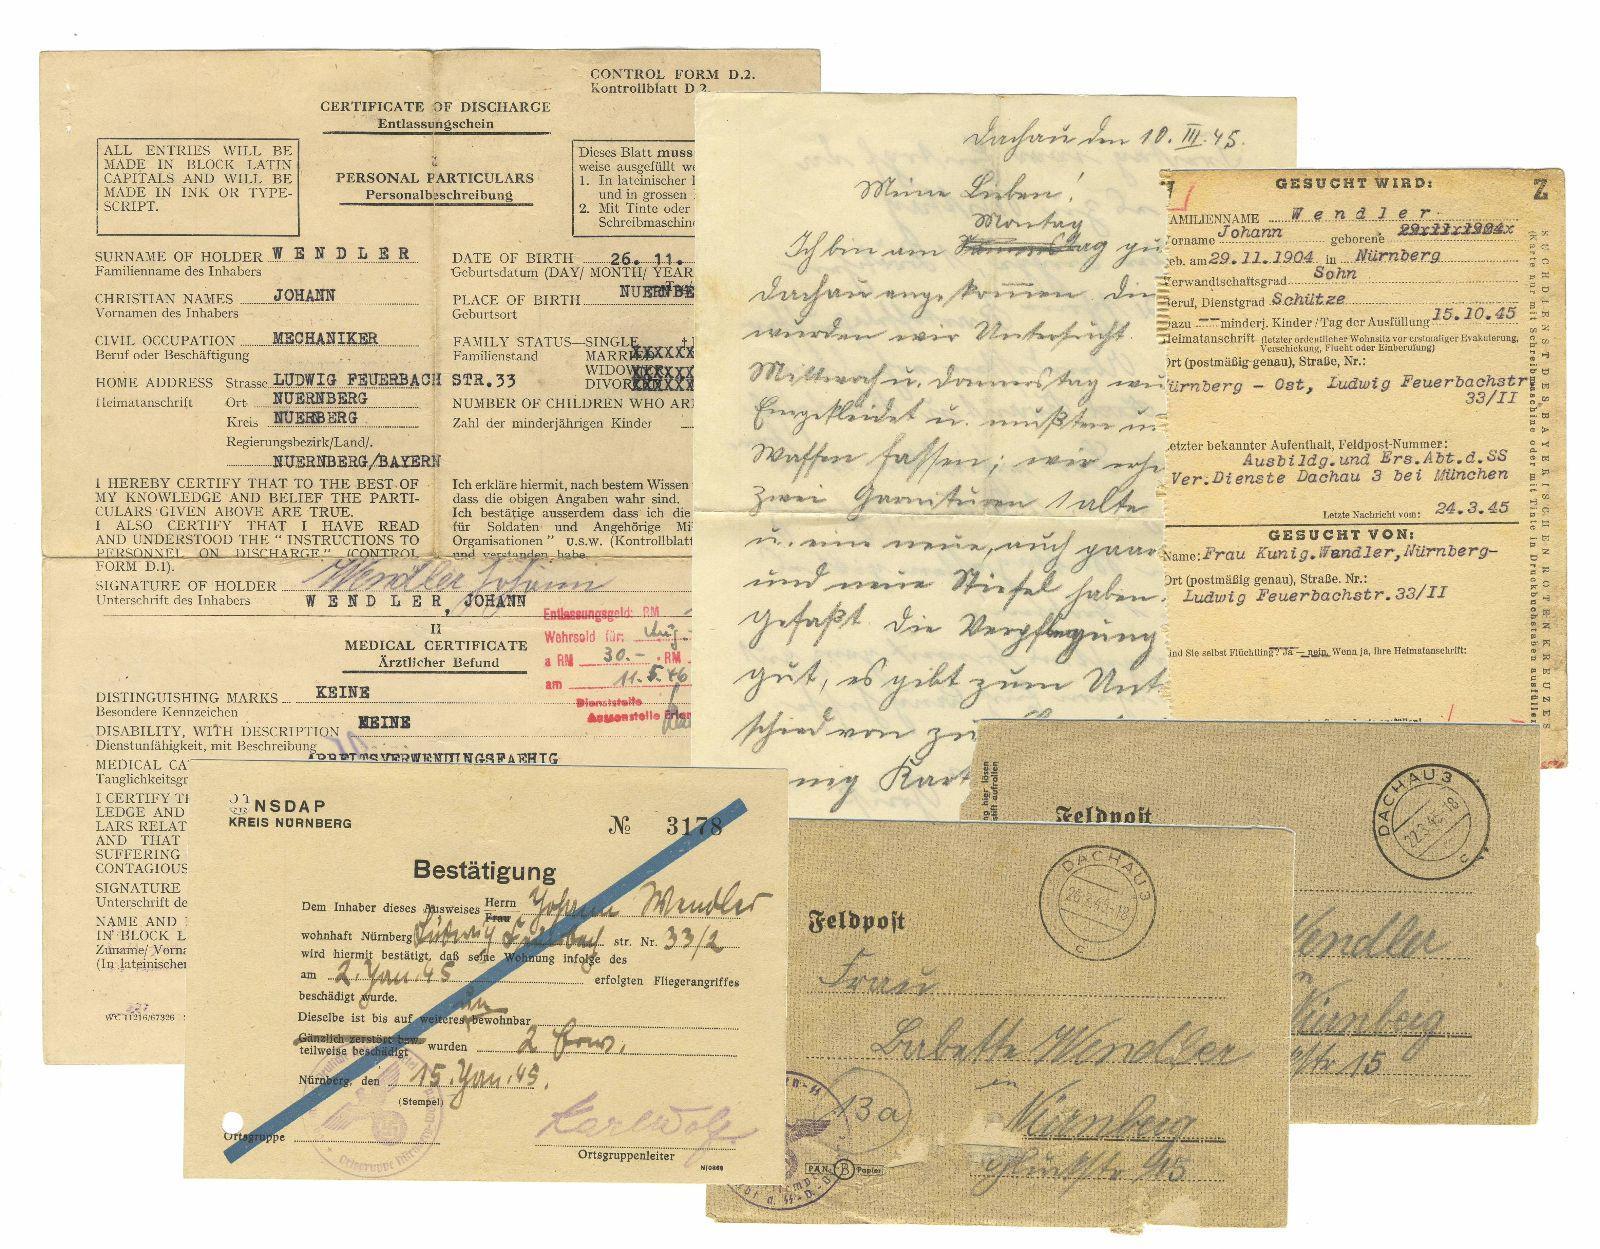 CONTROL FORM D.2.
Kontrollblatt D.2.
CERTIFICATE OF DISCHARGE
Entlassungschein
ALL ENTRIES WILL BE
MADE IN BLOCK LATIN
CAPITALS AND WILL BE
MADE IN INK OR TYPE-
SCRIPT.
PERSONAL PARTICULARS
Personalbeschreibung
Dieses Blatt muss
weise ausgefüllt we
1. In lateinischer
und in grossen
2. Mit Tinte oder
Schreibmaschine
SURNAME OF HOLDER WENDLER
Familienname des Inhabers
DATE OF BIRTH 26. 11.
Geburtsdatum (DAY/ MONTH/ YEAR
CHRISTIAN NAMES JOHANN
Vornamen des Inhabers
PLACE OF BIRTH NUERNBE
Geburtsort
CIVIL OCCUPATION MECHANIKER
Beruf oder Beschäftigung
FAMILY STATUS—SINGLE †
Familienstand MARRIED XXXXXX
WIDOWER XXXXXX
DIVORCED XXXXXX
HOME ADDRESS Strasse LUDWIG FEUERBACH STR.33
Heimatanschrift Ort NUERNBERG
Kreis NUERBERG
Regierungsbezirk/Land/.
NUERNBERG/BAYERN
NUMBER OF CHILDREN WHO AR
Zahl der minderjährigen Kinder
I HEREBY CERTIFY THAT TO THE BEST OF
MY KNOWLEDGE AND BELIEF THE PARTI-
CULARS GIVEN ABOVE ARE TRUE.
I ALSO CERTIFY THAT I HAVE READ
AND UNDERSTOOD THE "INSTRUCTIONS TO
PERSONNEL ON DISCHARGE" (CONTROL
FORM D.1).
Ich erkläre hiermit, nach bestem Wissen
dass die obigen Angaben wahr sind.
Ich bestätige ausserdem dass ich die
für Soldaten und Angehörige Mi
Organisationen" U.S.W. (Kontrollblatt
und verstanden habe.
SIGNATURE OF HOLDER Wendler Johann
Unterschrift des Inhabers WENDLER, JOHANN
II
MEDICAL CERTIFICATE
Ärztlicher Befund
Entlassungsgeld: RM
Wehrsold für: Aug.
a RM 30.- RM
am 11.5.46
Dienststelle
Aussenstelle Erlan
DISTINGUISHING MARKS KEINE
Besondere Kennzeichen
DISABILITY, WITH DESCRIPTION KEINE
Dienstunfähigkeit, mit Beschreibung
MEDICAL CA ARBEITSVERWENDUNGSFAEHIG
Tauglichkeitsgr
I CERTIFY TH
LEDGE AND
LARS RELAT
AND THAT
SUFFERING
CONTAGIOUS
SIGNATURE
Unterschrift de
NAME AND
IN BLOCK L
Zuname/ Vorna
(In lateinischer
W.C. 11216/67326
Dachau den 10. III. 45.
Meine Lieben!
Montag
Ich bin am Samstag zu
Dachau angekommen. Die
wurden wir Untersucht.
Mittwoch u. Donnerstag wu
Eingekleidet u. mußten u
Waffen fassen; wir erhe
zwei Garnituren 1 alte
u. eine neue, auch paar
und neue Stiefel haben
gefaßt. Die Verpflegung
gut, es gibt zum Unt
schied von zu
nig Kart
GESUCHT WIRD:
Z
FAMILIENNAME Wendler
Vorname Johann geborene 29.11.1904x
geb. am 29.11.1904 in Nürnberg
Verwandtschaftsgrad Sohn
Beruf, Dienstgrad Schütze
Dazu -- minderj. Kinder / Tag der Ausfüllung 15.10.45
Heimatanschrift (letzter ordentlicher Wohnsitz vor erstmaliger Evakuierung,
Verschickung, Flucht oder Einberufung)
Ort (postmäßig genau), Straße, Nr.:
Nürnberg - Ost, Ludwig Feuerbachstr
33/II
Letzter bekannter Aufenthalt, Feldpost-Nummer:
Ausbildg.und Ers.Abt.d.SS
Ver.Dienste Dachau 3 bei München
Letzte Nachricht vom: 24.3.45
GESUCHT VON:
Name: Frau Kunig.Wendler, Nürnberg-
Ort (postmäßig genau), Straße. Nr.:
Ludwig Feuerbachstr.33/II
Sind Sie selbst Flüchtling? Ja — nein. Wenn ja, ihre Heimatanschrift:
SUCHDIENST DES BAYERISCHEN ROTEN KREUZES
(Karte nur mit Schreibmaschine oder mit Tinte in Druckbuchstaben ausfüllen
NSDAP
KREIS NÜRNBERG
№ 3178
Bestätigung
Dem Inhaber dieses Ausweises Herrn Johann Wendler
Frau
wohnhaft Nürnberg Ludwig Feuerbach str. Nr. 33/2
wird hiermit bestätigt, daß seine Wohnung infolge des
am 2. Jan. 45 erfolgten Fliegerangriffes
beschädigt wurde.
un
Dieselbe ist bis auf weiteres bewohnbar
Gänzlich zerstört bzw.
teilweise beschädigt wurden 2 Erw.
Nürnberg, den 15. Jan. 45.
(Stempel)
Ortsgruppe
Karl Wolf
Ortsgruppenleiter
Feldpost
DACHAU 3
Wendler
in
Nürnberg
str 15
Feldpost
DACHAU 3
c
Frau
Babette Wendler
in
Nürnberg
13a
PAN B Papier